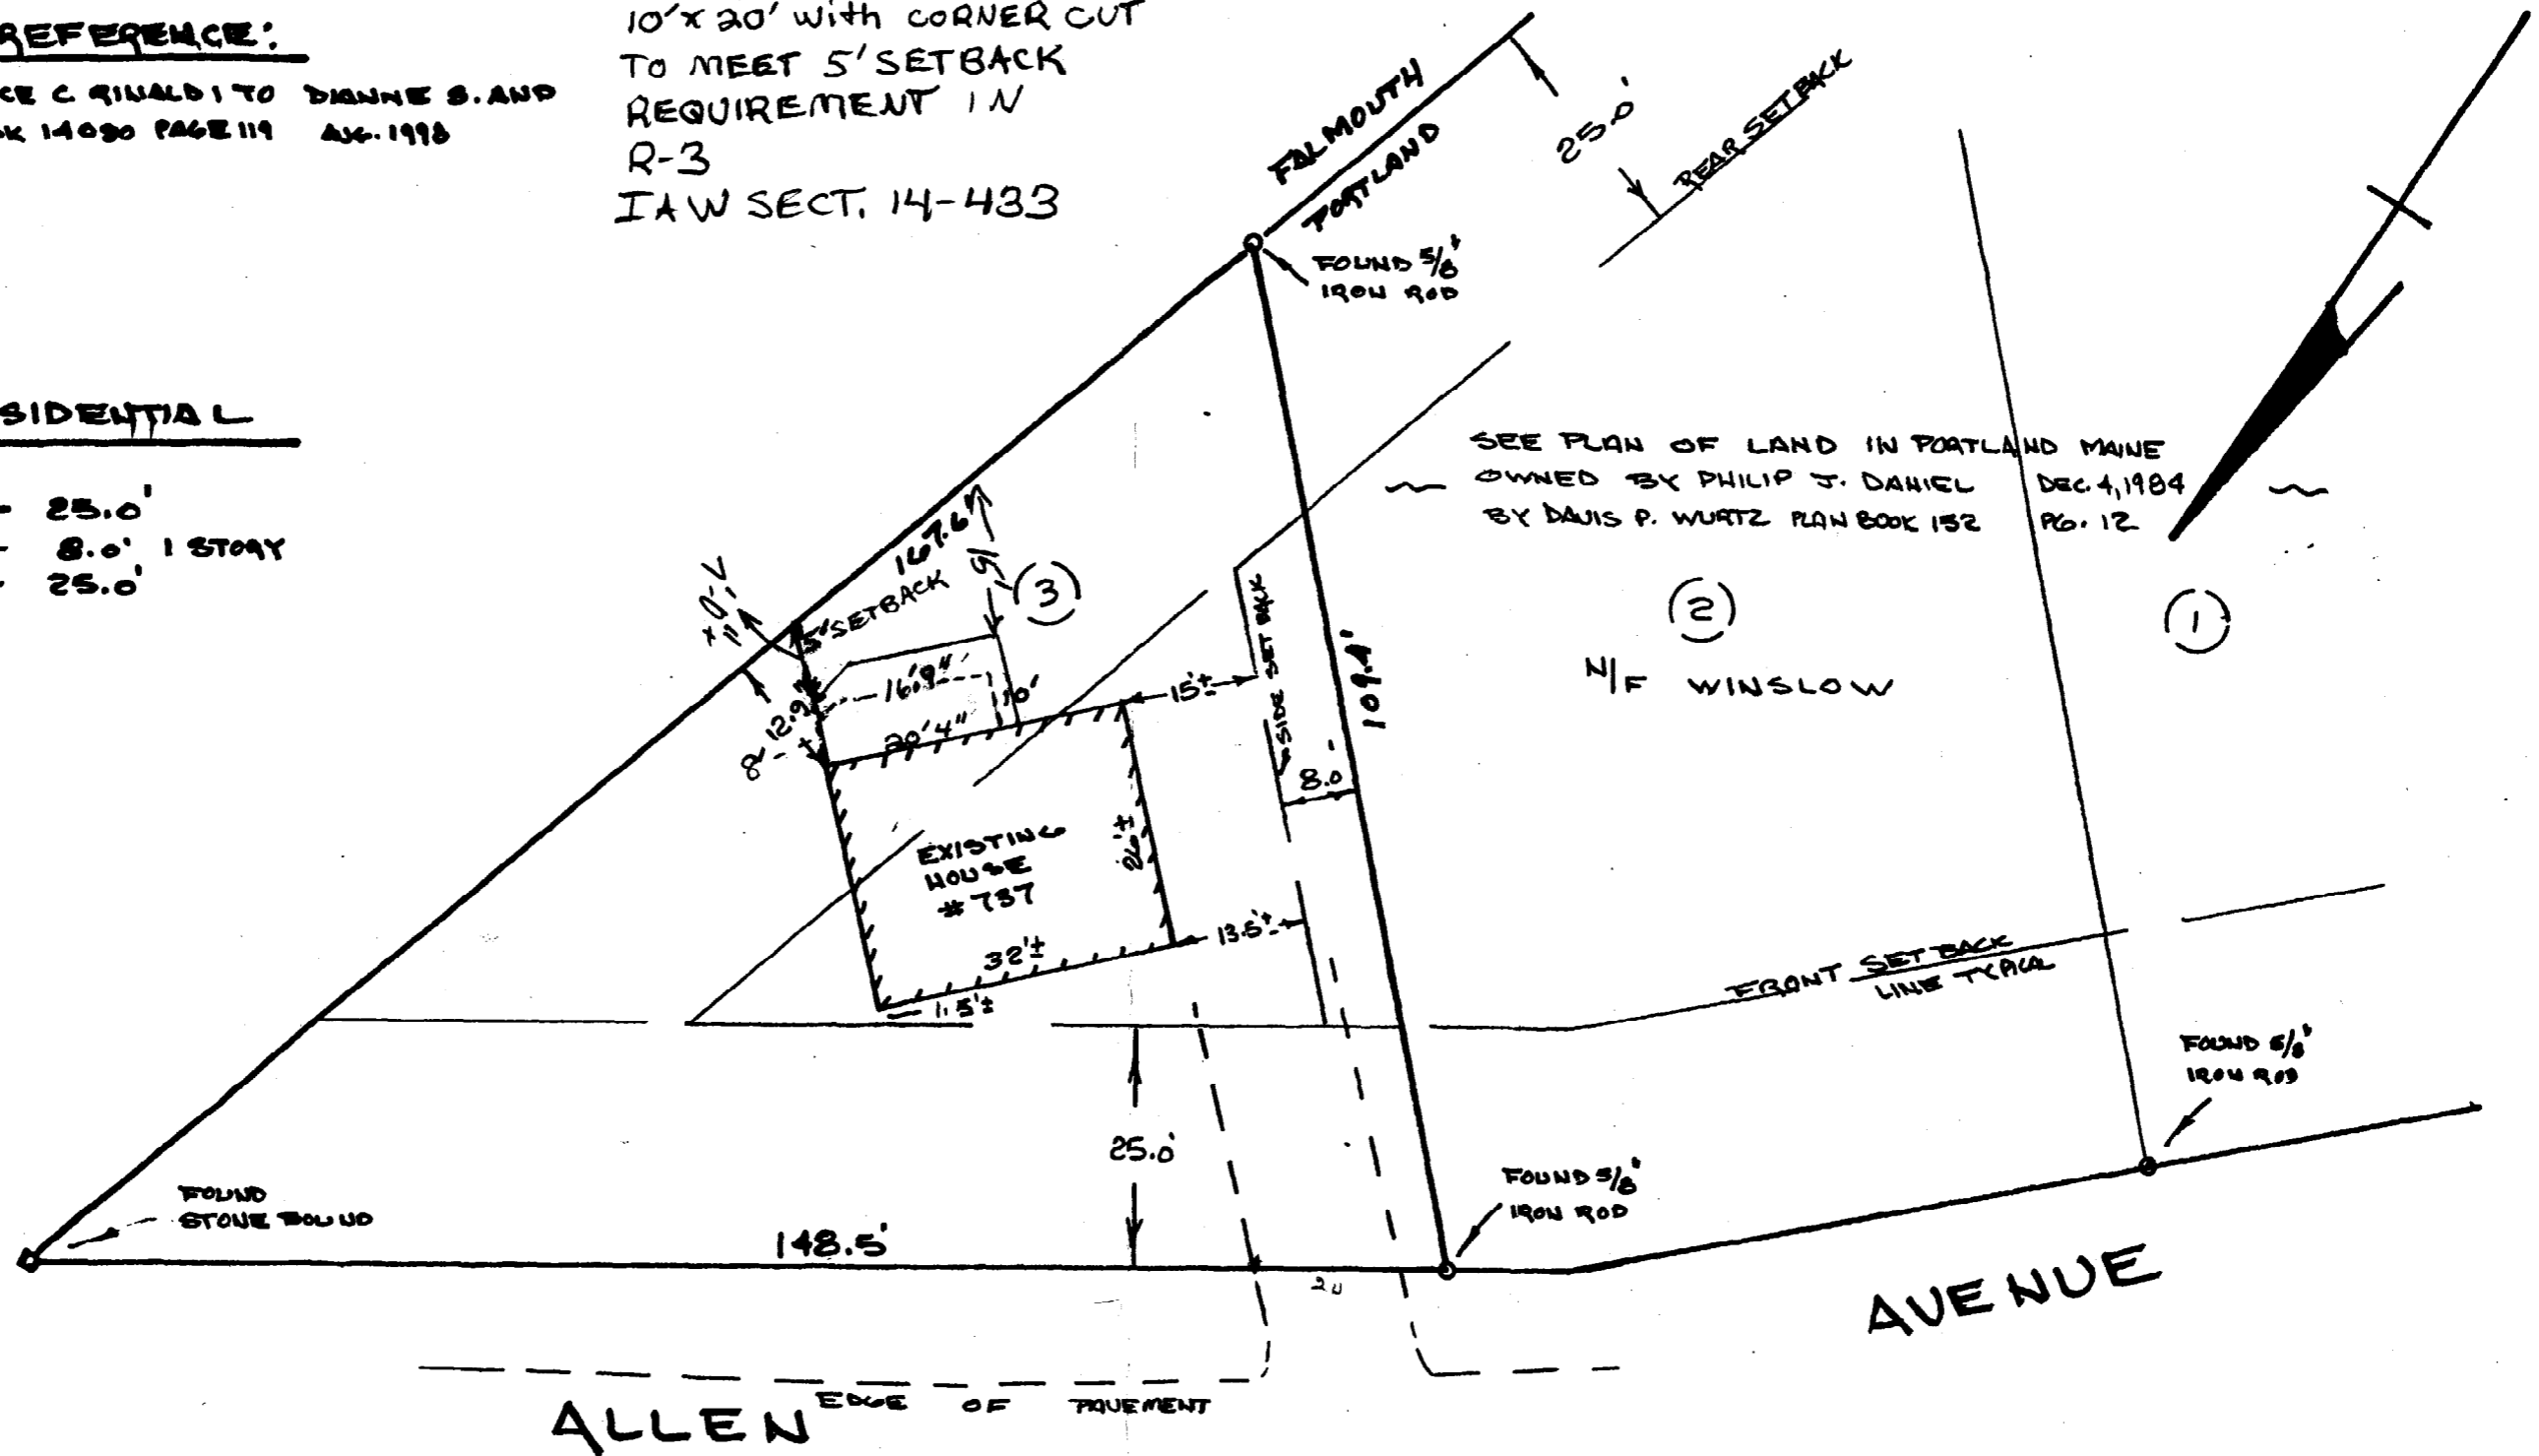 REFERENCE:
CE C RINALDI TO DIANNE S. AND
K 14090 PAGE 119 AUG. 1998
10' x 20' with CORNER CUT
TO MEET 5' SETBACK
REQUIREMENT IN
R-3
IAW SECT. 14-433
SIDENTIAL
- 25.0'
- 8.0' 1 STORY
- 25.0'
FALMOUTH
PORTLAND
25.0'
REAR SETBACK
FOUND 5/8"
IRON ROD
SEE PLAN OF LAND IN PORTLAND MAINE
OWNED BY PHILIP J. DANIEL DEC. 4, 1984
BY DAVIS P. WURTZ PLAN BOOK 152 PG. 12
167.6'
5' SETBACK
3
2
1
N/F WINSLOW
16'9"
10'
20'4"
12.9'
15'±
SIDE SET BACK
109.4'
8.0'
EXISTING
HOUSE
#737
26'±
32'±
13.5'±
1.5'±
FRONT SET BACK
LINE TYPICAL
25.0'
FOUND 5/8"
IRON ROD
FOUND 5/8"
IRON ROD
FOUND
STONE BOUND
148.5'
20
AVENUE
EDGE OF PAVEMENT
ALLEN